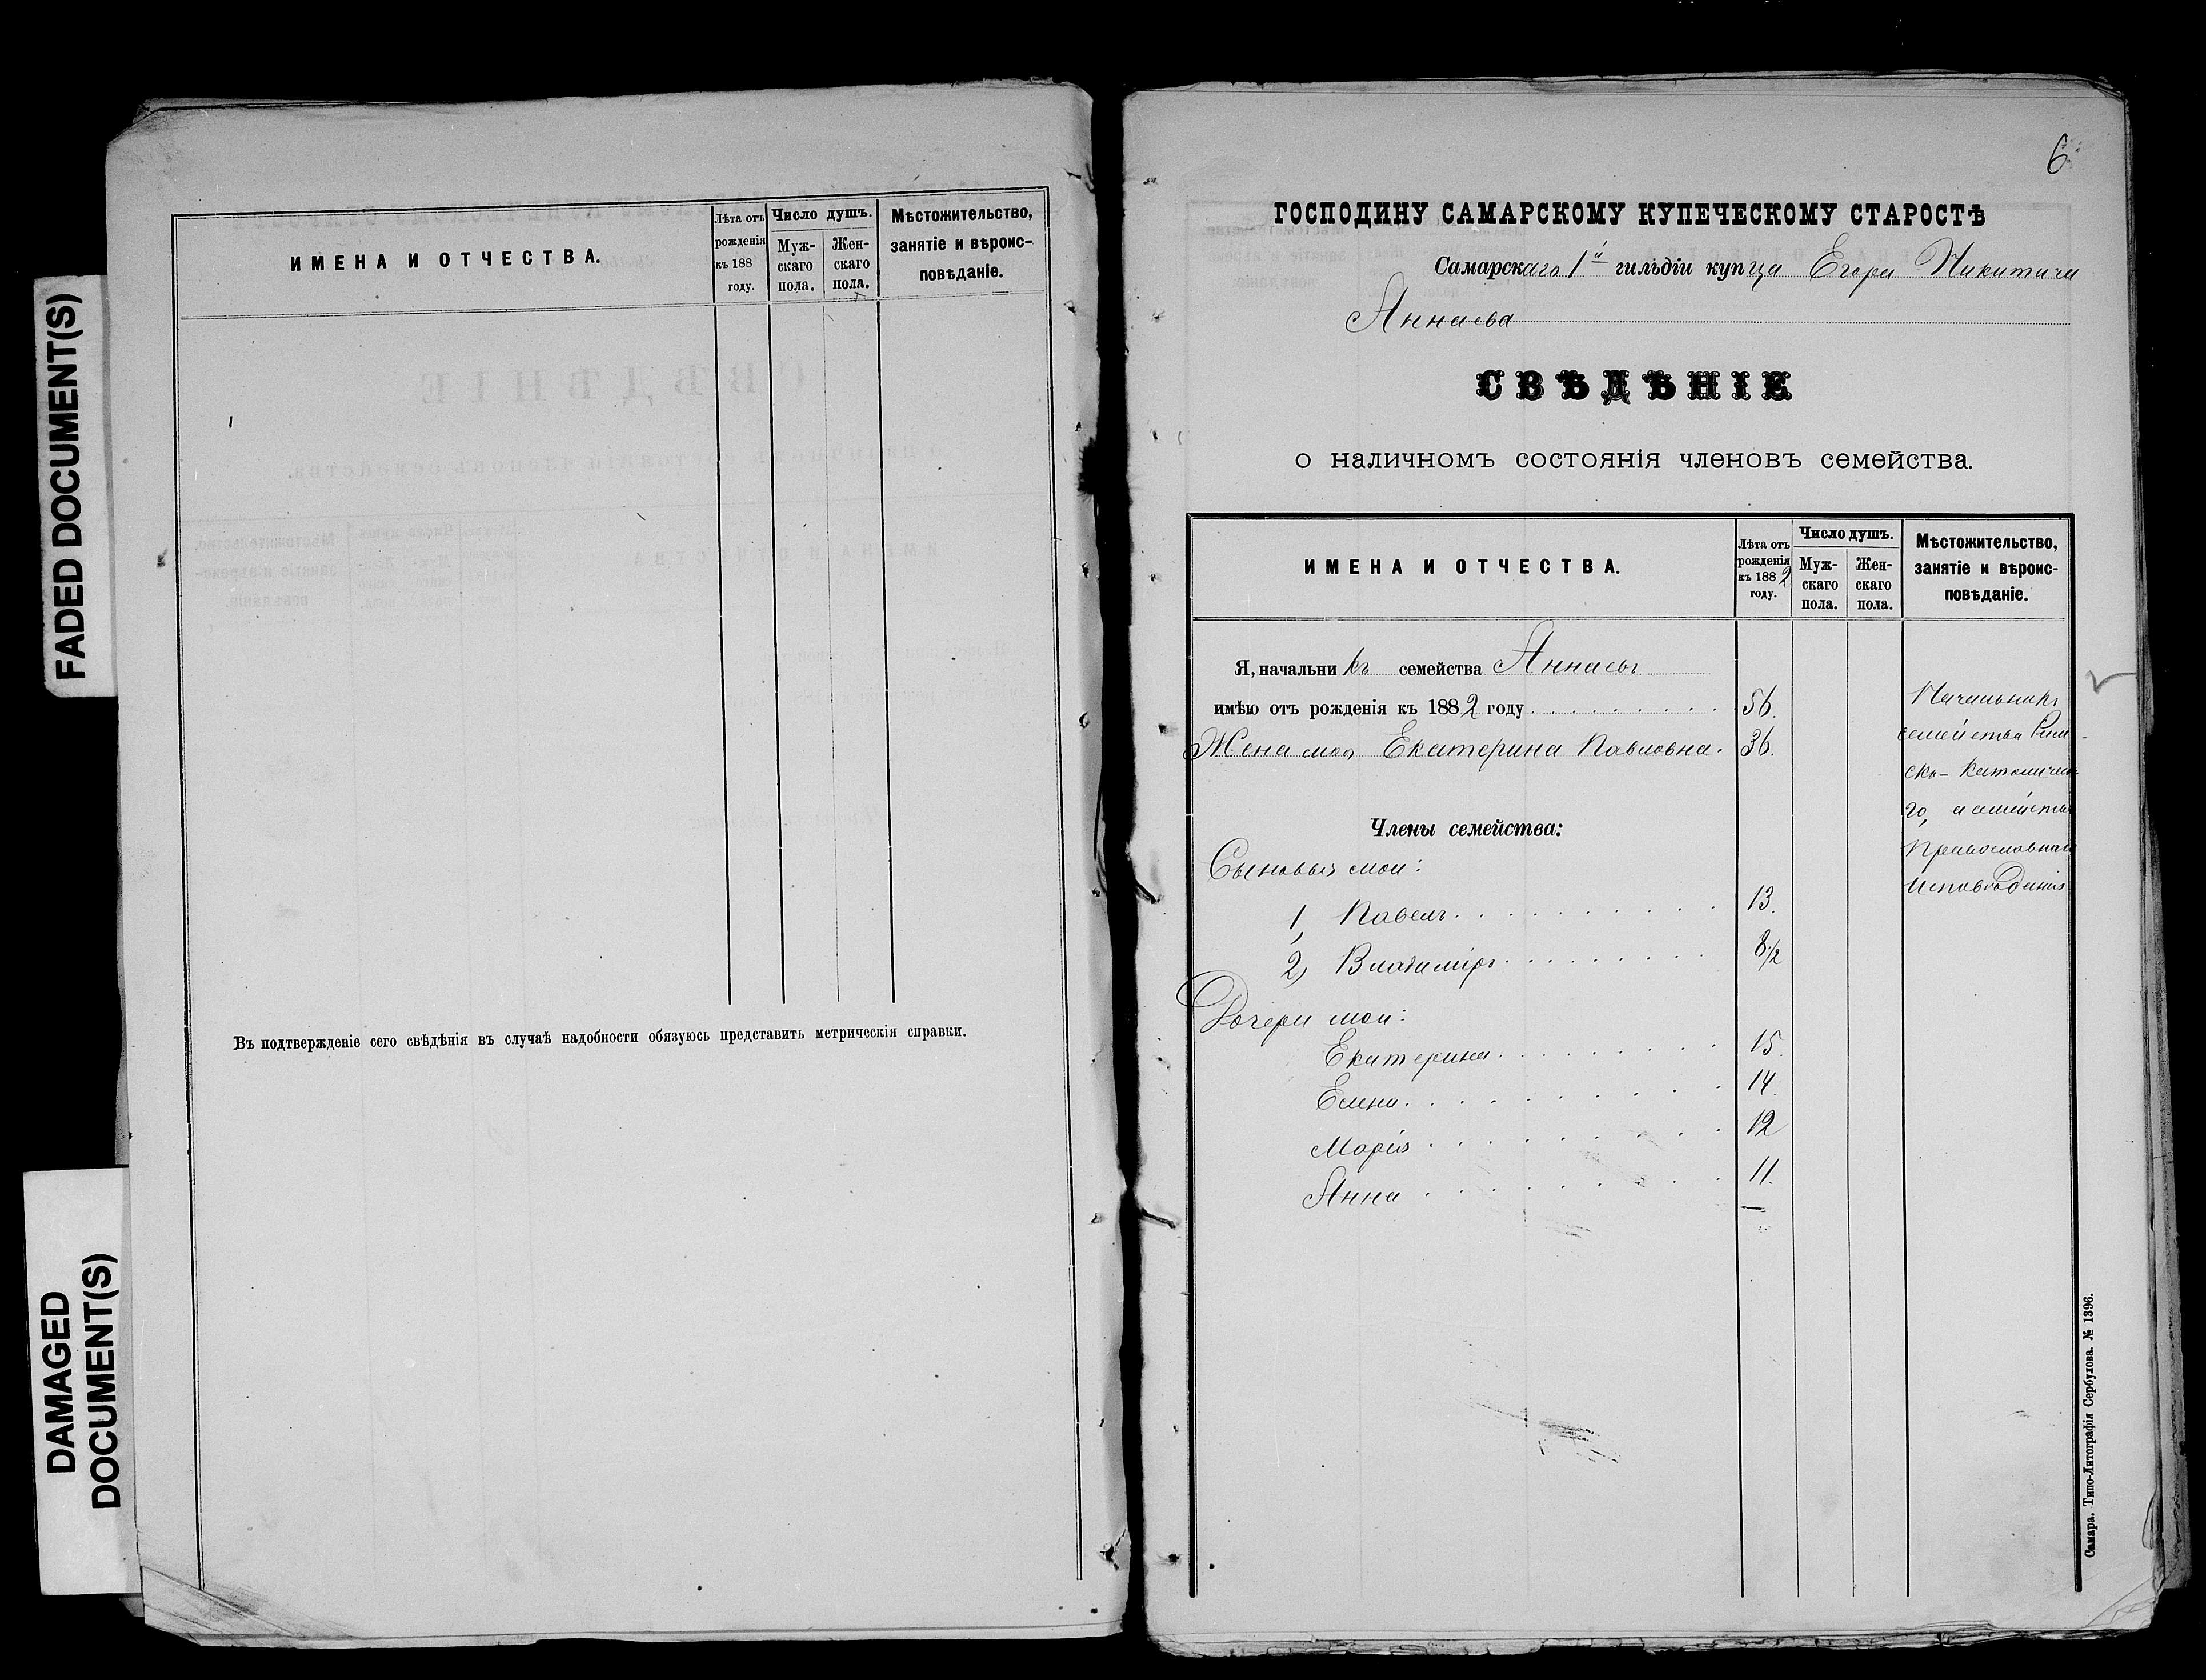 FADED DOCUMENT(S)
DAMAGED
DOCUMENT(S)
ИМЕНА И ОТЧЕСТВА.
Лѣта отъ
рожденія
къ 188
году.
Число душъ.
Муж-
скаго
пола.
Жен-
скаго
пола.
Мѣстожительство,
занятіе и вѣроис-
повѣданіе.
Въ подтвержденіе сего свѣдѣнія въ случаѣ надобности обязуюсь представить метрическія справки.
6
ГОСПОДИНУ САМАРСКОМУ КУПЕЧЕСКОМУ СТАРОСТѢ
Самарскаго 1й гильдіи купца Егора Никитича
Аннаева
СВѢДѢНІЕ
о наличномъ состоянія членовъ семейства.
ИМЕНА И ОТЧЕСТВА.
Лѣта отъ
рожденія
къ 1882
году.
Число душъ.
Муж-
скаго
пола.
Жен-
скаго
пола.
Мѣстожительство,
занятіе и вѣроис-
повѣданіе.
Я, начальникъ семейства Аннаевъ
имѣю отъ рожденія къ 1882 году 56.
Жена моя Екатерина Павловна. 36.
Начальникъ
семейства Рим-
ско-Католическа
го, а семейство
Православнаго
исповѣданія
Члены семейства:
Сыновья мои:
1, Павелъ 13.
2, Владиміръ 8 1/2
Дочери мои:
Екатерина 15.
Елена 14.
Марія 12
Анна 11.
Самара. Типо-Литографія Сербулова. № 1396.